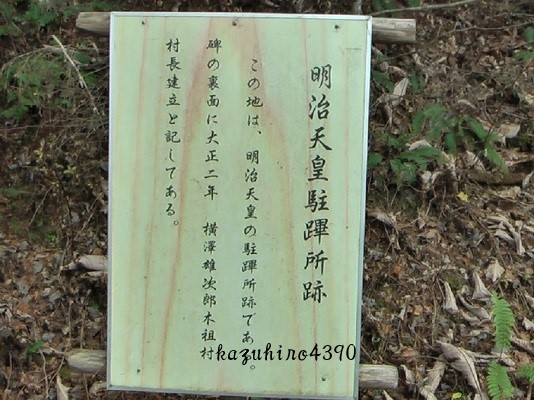 明治天皇駐蹕所跡
この地は、明治天皇の駐蹕所跡である。
碑の裏面に大正二年　横澤雄次郎木祖村
村長建立と記してある。
kazuhiro4390